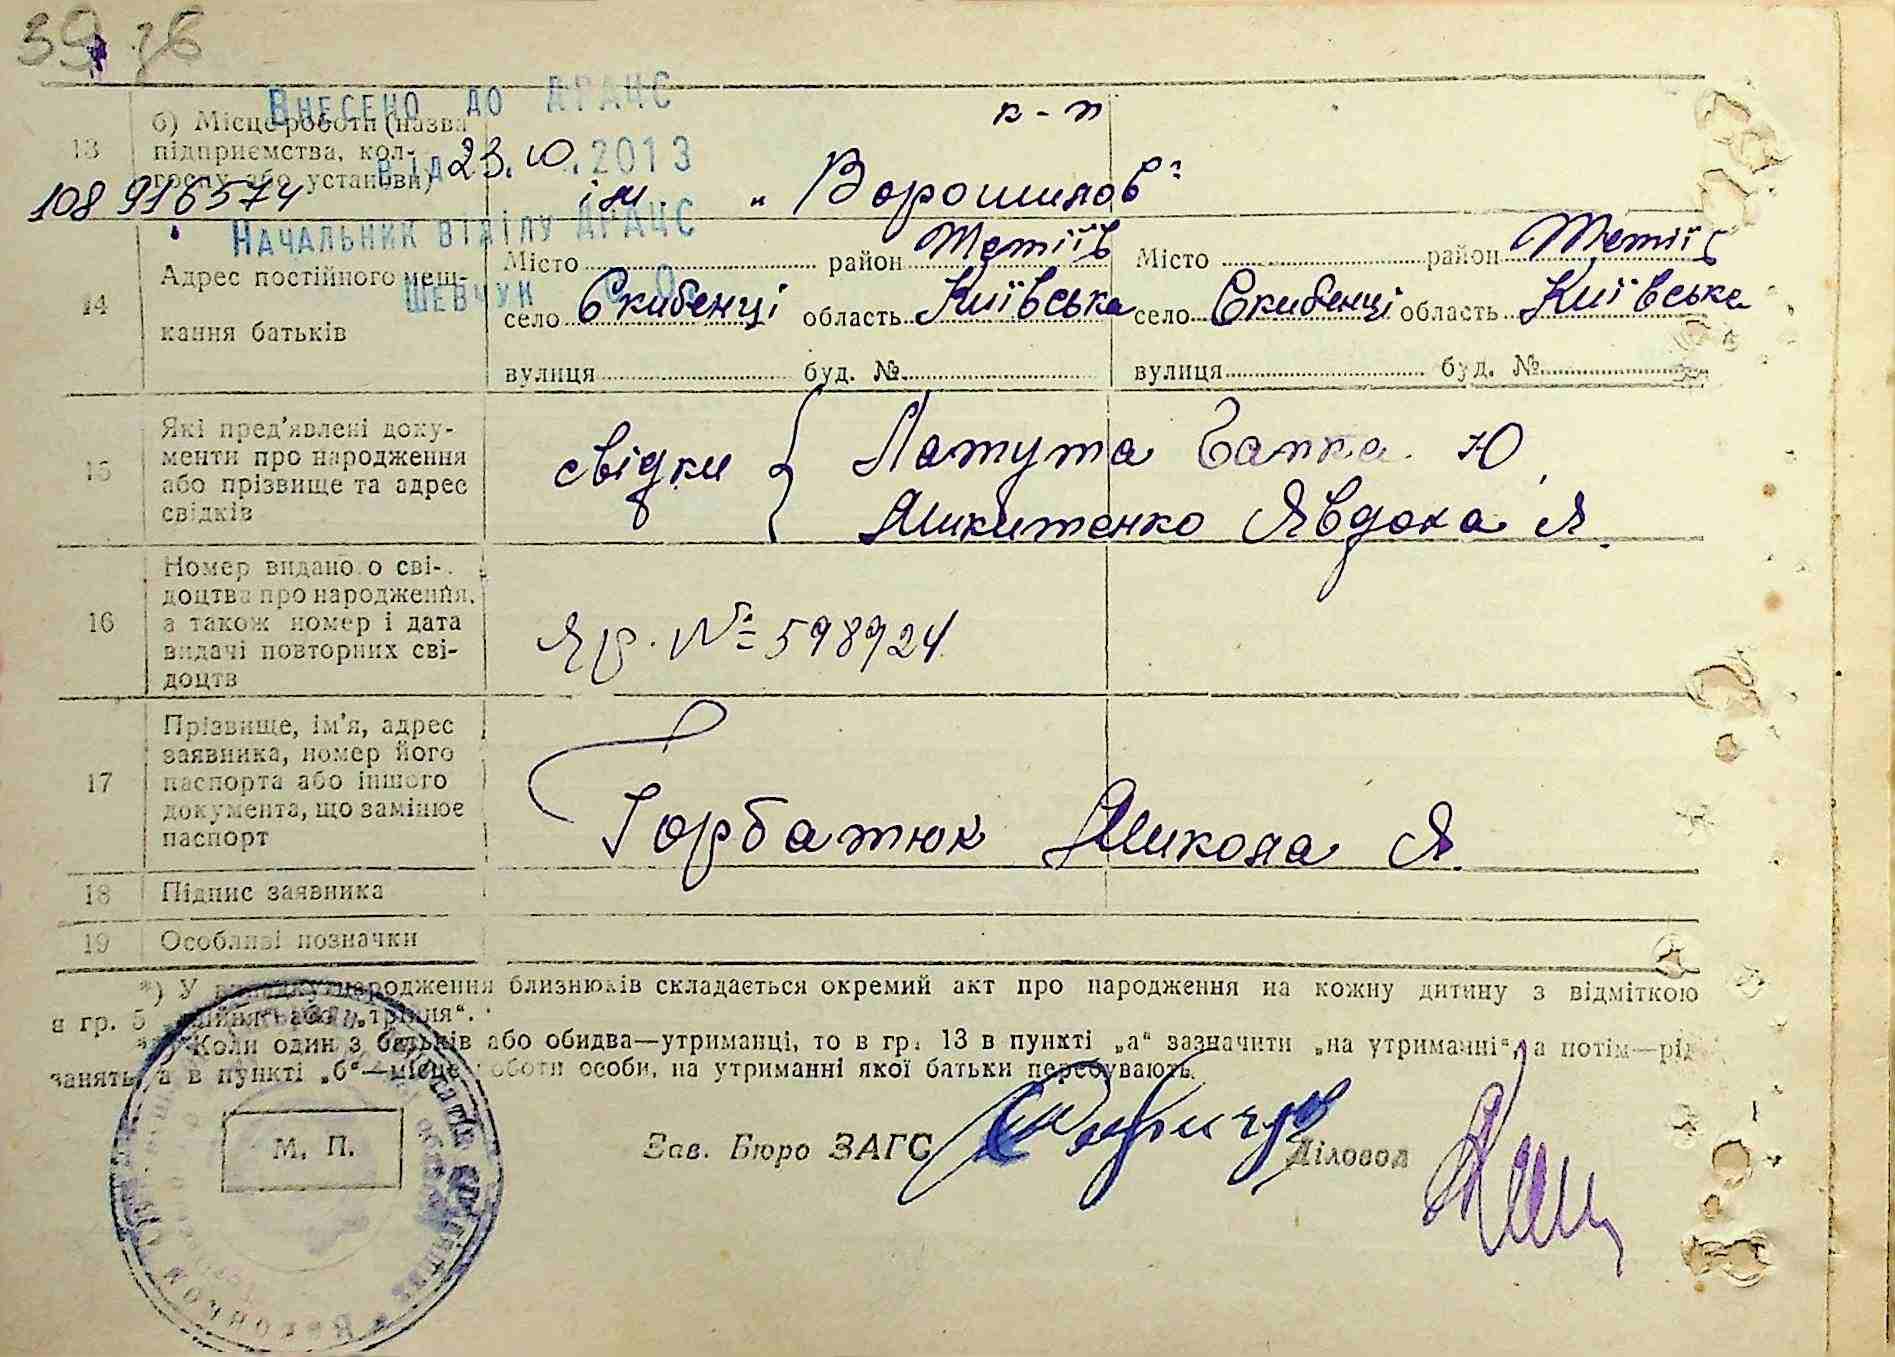 39 зв
ВНЕСЕНО ДО ДРАЦС
від 23.10.2013
108 918574
НАЧАЛЬНИК ВІДДІЛУ ДРАЦС
ШЕВЧУК О.О.
13 б) Місце роботи (назва підприємства, колгоспу або установи)
к-п
ім. „Ворошилов"
14 Адрес постійного мешкання батьків
Місто район Тетіїв Місто район Тетіїв
село Скибенці область Київська село Скибенці область Київська
вулиця буд. № вулиця буд. №
15 Які пред'явлені документи про народження або прізвище та адрес свідків
свідки Латута Ганка Ю.
Микитенко Явдоха Я.
16 Номер виданого свідоцтва про народження, а також номер і дата видачі повторних свідоцтв
яр. № 598924
17 Прізвище, ім'я, адрес заявника, номер його паспорта або іншого документа, що замінює паспорт
Горбатюк Микола Я.
18 Підпис заявника
19 Особливі позначки
*) У випадку народження близнюків складається окремий акт про народження на кожну дитину з відміткою
в гр. 5 „двійня" або „трійня".
**) Коли один з батьків або обидва—утриманці, то в гр. 13 в пункті „а" зазначити „на утриманні", а потім—рід
занять, а в пункті „б"—місце роботи особи, на утриманні якої батьки перебувають.
М. П.
Зав. Бюро ЗАГС Діловод